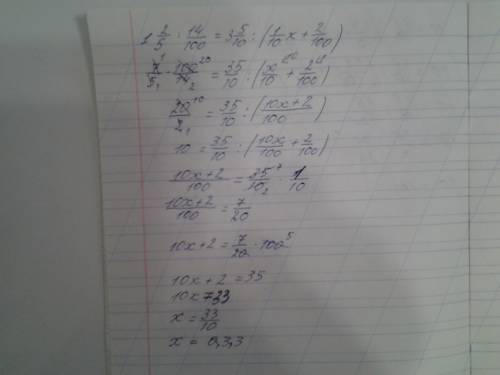 1 2/5 : 14/100 = 3 5/10 : (1/10 x + 2/100)
7/5 · 100/14 = 35/10 : (x/10 + 2/100)
20/2 = 35/10 : (10x+2/100)
10 = 35/10 : (10x/100 + 2/100)
10x+2/100 = 35/10 · 1/10
10x+2/100 = 7/20
10x+2 = 7/20 · 100
10x + 2 = 35
10x = 33
x = 33/10
x = 0,3,3